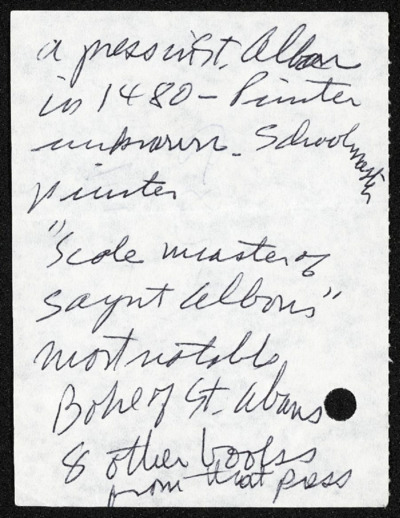 a press in St. Alban
in 1480 - Printer
unknown. Schoolmaster
printer
"Scole master of
Saynt Albons"
most notable
Boke of St. Albans
8 other books
from that press